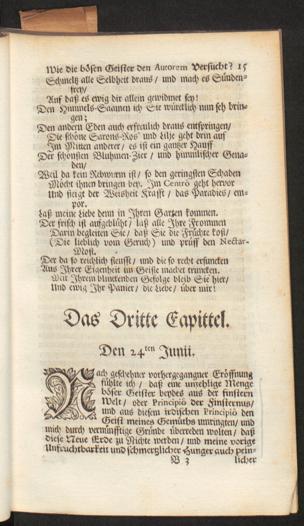 Wie die bösen Geister den Autorem Versucht? 15
Schmeltz alle Selbheit draus / und mach es Sünden-
frey /
Auf daß es ewig dir allein gewidmet sey!
Den Himmels-Saamen ich Sie würcklich nun seh brin-
gen;
Den andern Eden auch erfreulich draus entspringen /
Die schöne Sarons-Ros' und Lilje geht drin auf
Im Mitten anderer / es ist ein gantzer Hauff
Der schönsten Bluhmen-Zier / und himmlischer Gena-
den /
Weil da kein Rehwurm ist / so den geringsten Schaden
Möcht ihnen bringen bey. Im Centrô geht hervor
Und steigt der Weisheit Krafft / das Paradies / em-
por.
Laß meine Liebe denn in Ihren Garten kommen.
Der frisch ist aufgeblüht / laß alle Ihre Frommen
Darin begleiten Sie / daß Sie die Früchte kost /
(Die lieblich vom Geruch) und prüff den Nectar-
Most.
Der da so reichlich fleusst / und die so recht ersuncken
Aus Ihrer Eigenheit im Geiste machet truncken.
Mit Ihrem blinckenden Gefolge bleib Sie hier /
Und ewig Ihr Panier / die Liebe / über mir!
Das Dritte Capittel.
Den 24ten Junii.
Nach geschehner vorhergegangner Eröffnung
fühlte ich / daß eine unzehlige Menge
böser Geister beydes aus der finstern
Welt / oder Principiô der Finsternus /
und aus diesem irdischen Principiô den
Geist meines Gemüths umringten / und
mich durch vernünfftige Gründe überreden wolten / daß
diese Neue Erde zu Nichte werden / und meine vorige
Unfruchtbarkeit und schmertzlicher Hunger auch pein-
B 3 licher